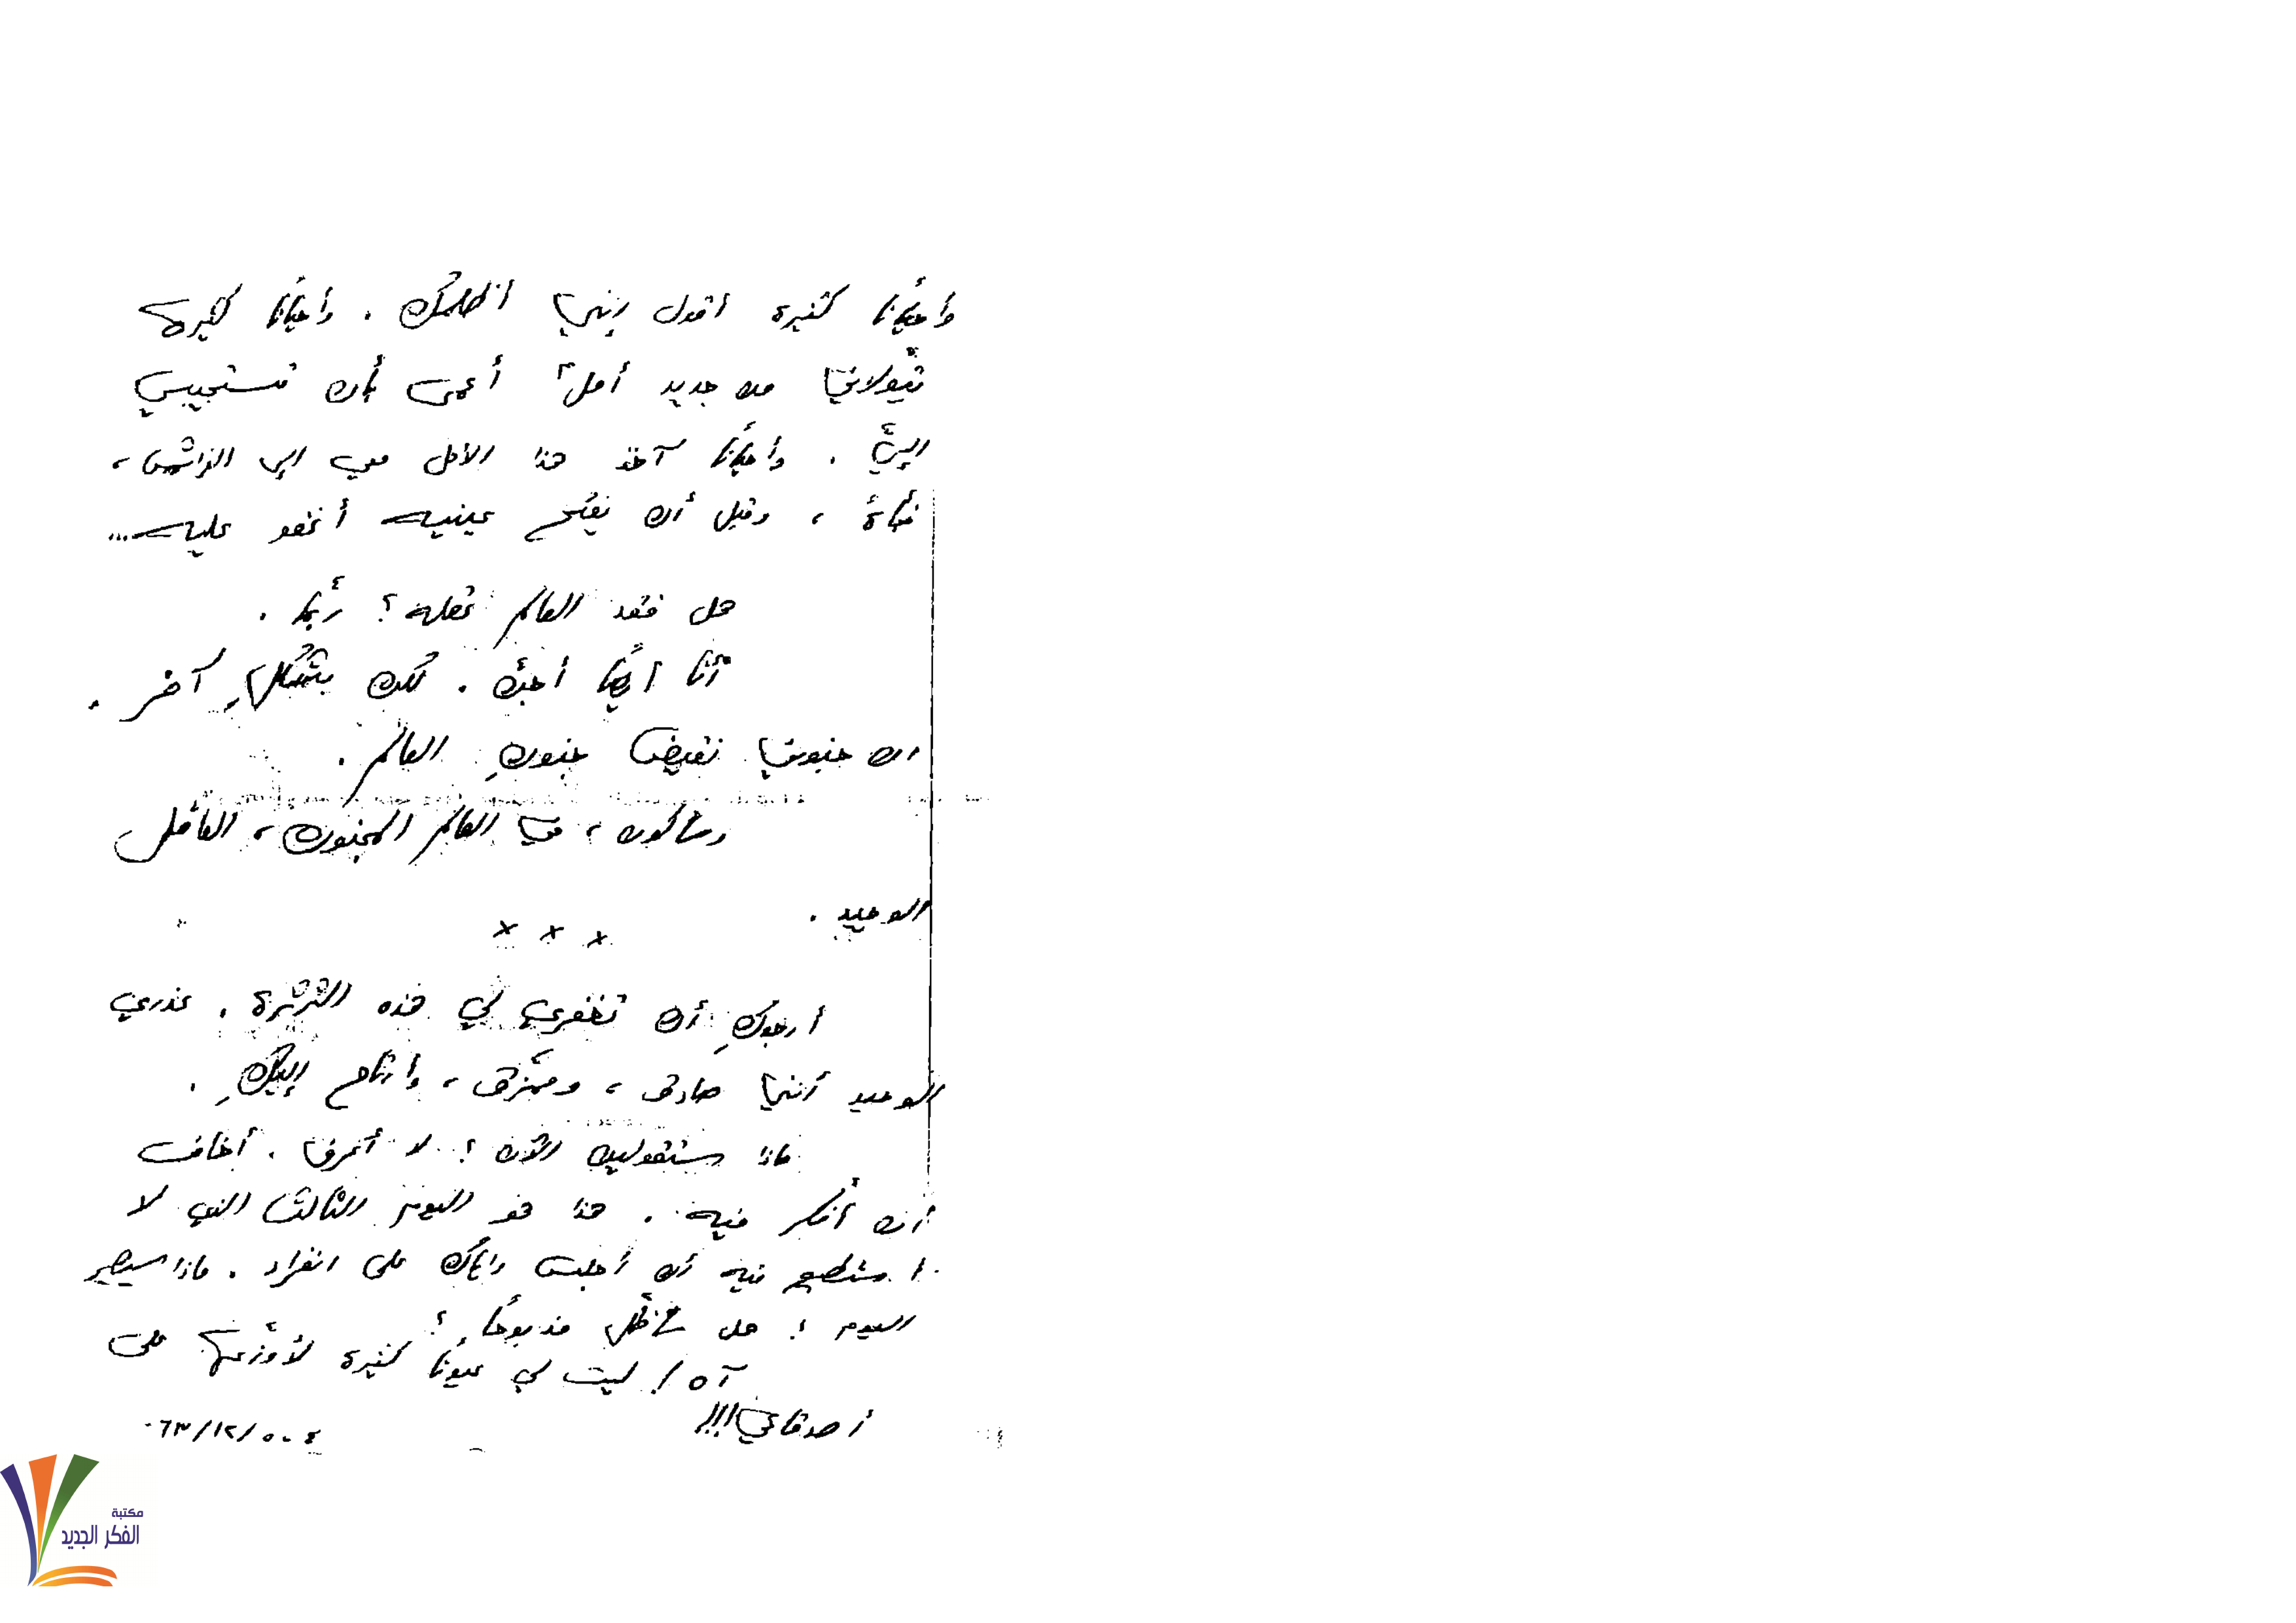 وأحيانًا كثيرة أقول إنني أظلمك . وأحيانًا كثيرة
يتولاني من جديد أملٌ أعمى بأن تستجيبي
إليّ . وأحيانًا آخذ هذا الأمل معي إلى الفراش ،
فجأةً ، وقبل أن يفتح عينيه أغفو عليه ...
هل فقد العالم عقله ؟ ربّما .
أنا أيضًا أجنّ . لكن بشكلٍ آخر .
ان جنوني نقيض جنونِ العالم .
وسأكون ، في العالم المجنون ، العاقل
الوحيد .
× × ×
أرجوكِ أن تغفري لي هذه الثرثرة . عذري
الوحيد أنني صادق ، وممزّق ، وأرتاح إليكِ .
ماذا ستقولين الآن ؟ لا أعرف . أخاف
أن أفكر فيه . هذا هو اليوم الثالث الذي لا
أستطيع فيه أن أجلس وإياك على انفراد . ماذا سيصير
اليوم ؟ هل سأظلّ مذبوحًا ؟
آه ! ليت لي عيونًا كثيرة لأوزّعها على
أصدقائي !!!
٦٣/١٢/٥-٤
مكتبة
الفكر الجديد